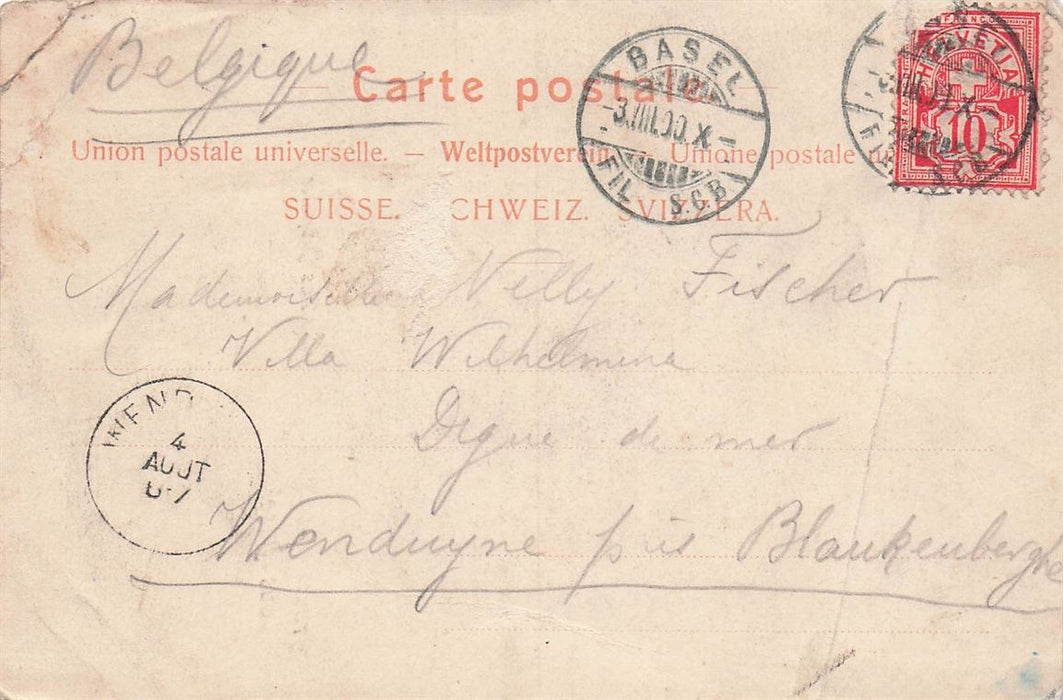 Belgique
Carte postale.
Union postale universelle. — Weltpostverein — Unione postale
SUISSE. CHWEIZ. SVIZZERA.
BASEL
-3.VIII.00.X-
FIL. S.C.B.
FRANCO
HELVETIA
10
Mademoiselle Nelly Fischer
Villa Wilhelmina
Digue de mer
Wenduyne près Blankenberghe
WEND
4
AOUT